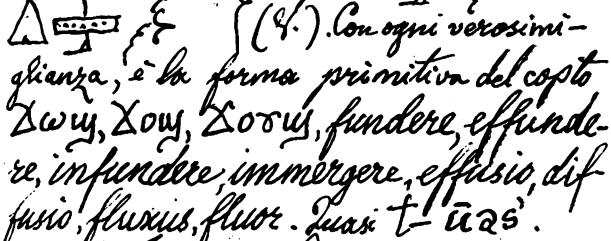 (V.). Con ogni verosimi-
glianza, è la forma primitiva del copto
ϫⲱϣ, ϫⲟϣ, ϫⲟⲩϣ, fundere, effunde-
re, infundere, immergere, effusio, dif-
fusio, fluxus, fluor. Quasi t-ūaš.